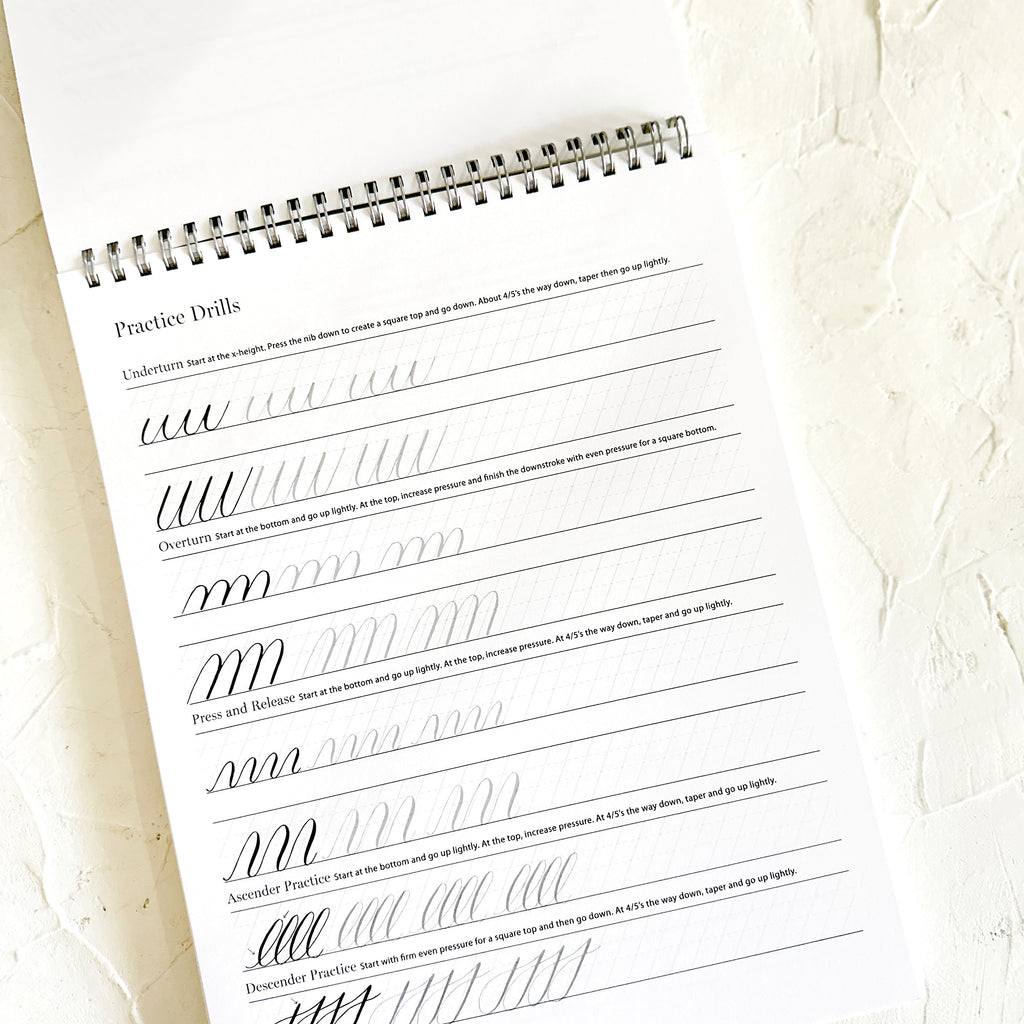 Practice Drills
Underturn Start at the x-height. Press the nib down to create a square top and go down. About 4/5's the way down, taper then go up lightly.
Overturn Start at the bottom and go up lightly. At the top, increase pressure and finish the downstroke with even pressure for a square bottom.
Press and Release Start at the bottom and go up lightly. At the top, increase pressure. At 4/5's the way down, taper and go up lightly.
Ascender Practice Start at the bottom and go up lightly. At the top, increase pressure. At 4/5's the way down, taper and go up lightly.
Descender Practice Start with firm even pressure for a square top and then go down. At 4/5's the way down, taper and go up lightly.